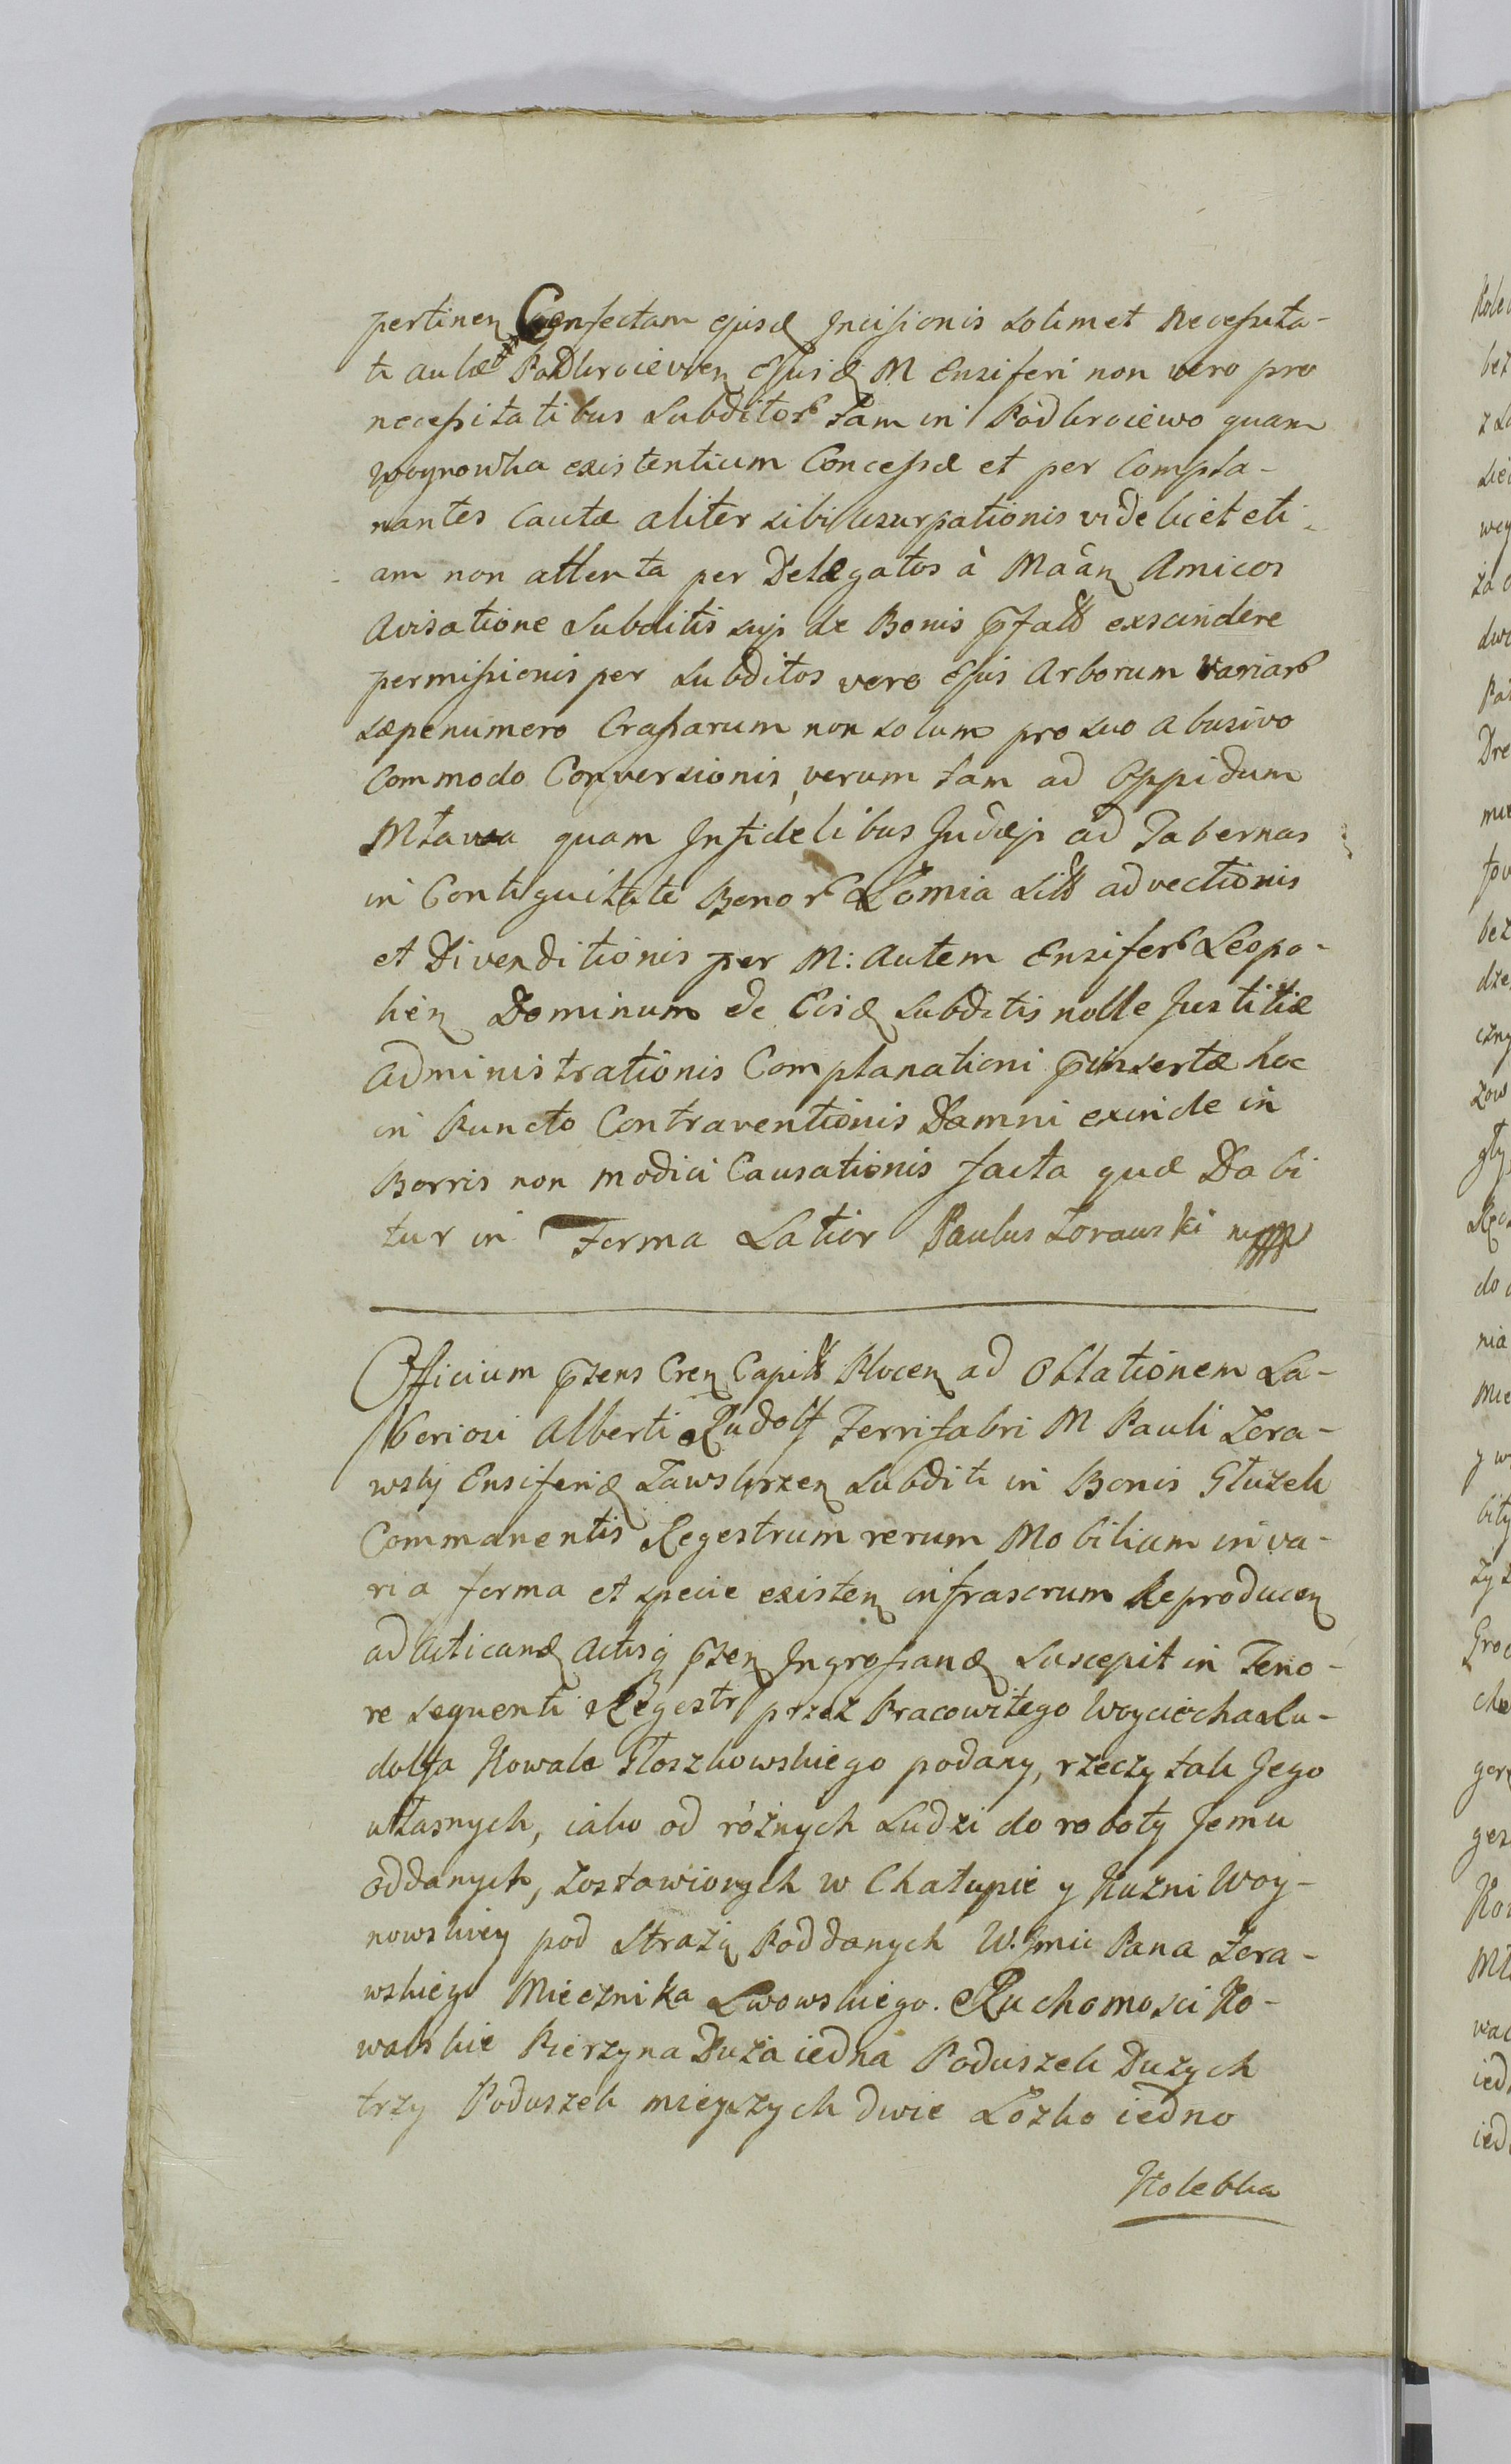 pertinen Confectam ejusd Incisionis solimet Necessita-
ti aulæ Podkrociewien Ejusd M Ensiferi non vero pro
necessitatibus Subditor tam in Podkrociewo quam
Woynowka existentium Concessæ et per Compla-
nantes Cautæ aliter sibi Usurpationis videlicet eti-
am non attenta per Delegatos à Maân Amicos
Avisatione Subditis suis de Bonis pfatt exscindere
permissionis per Subditos vero Ejus Arborum Variar
sæpenumero Crassarum non solum pro suo abusivo
Commodo Conversionis, verum tam ad Oppidum
Mława quam Infidelibus Judæis ad Tabernas
in Contiguitate Bonor Łomia Sitt advectionis
et Divenditionis per M: autem Ensifer Leopo-
lien Dominum de Eisd Subditis nolle Justitiæ
administrationis Complanationi pinsertæ hoc
in Puncto Contraventionis Damni exinde in
Borris non modici Causationis facta quæ Dabi
tur in Forma Latior Paulus Zorawski mpp
Officium pzens Cren Capitt Plocen ad Oblationem La-
boriosi Alberti Rudolf Ferrifabri M Pauli Zora-
wsky Ensiferid Zawskrzen Subditi in Bonis Głużek
Commanentis Regestrum rerum Mobilium in va-
ria forma et specie existen infrascrum Reproducen
ad acticand Actisq pzen Ingrossand Suscepit in Teno-
re sequenti Regestr przez Pracowitego Woyciecha Ru-
dolfa Kowala Głoszkowskiego podany, rzeczy tak Jego
własnych, iako od różnych Ludzi do roboty Jemu
oddanych, zostawionych w Chałupie y Kuzni Woy-
nowskiey pod Strażą Poddanych W. Jmc Pana Zora-
wskiego Miecznika Lwowskiego. Ruchomosci Ko-
walskie Pierzyna Duża iedna Poduszek Dużych
trzy Poduszek mnieyszych dwie Łozko iedno
Kolebka